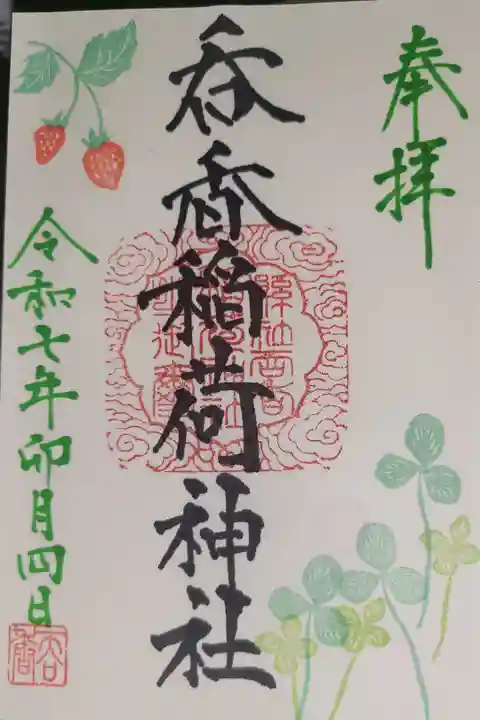 奉拝
呑香稲荷神社
令和七年卯月四日